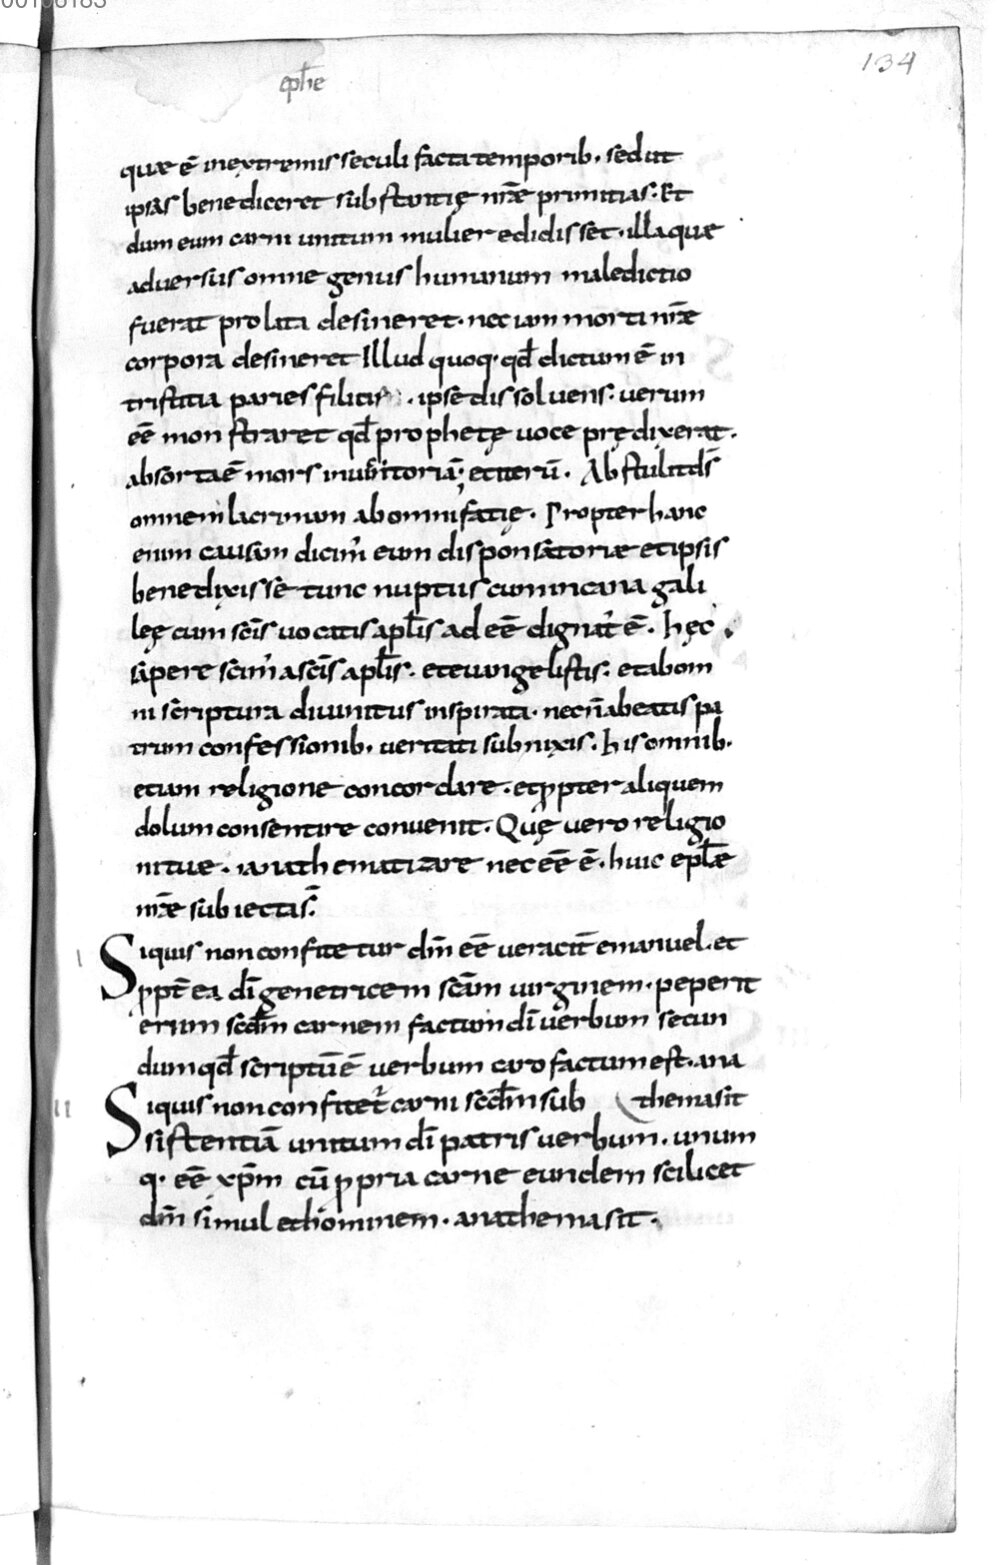 00106183
134
ephe
quae ē inextremis seculi facta temporib. sed ut
ipsas benediceret substantię nr̄ae primitias. Et
dum eum carni unitum mulier edidisset. illa quae
aduersus omne genus humanum maledictio
fuerat prolata desineret. nec iam morti nr̄ae
corpora desineret Illud quoq. qd̄ dictum ē in
tristitia paries filios. ipse dissoluens. uerum
eē monstraret qd̄ prophetę uoce prędixerat.
absorta ē mors in uictoria; et iterū. Abstulit ds̄
omnem lacrimam ab omni facię. Propter hanc
enim causam dicim' eum dispensatoriae et ipsis
benedixisse tunc nuptiis cum in cana gali
leę cum scīs uocatis apl̄is ad eē dignat' ē. hęc
sapere scim' a scīs apl̄is. et euangelistis. et ab om
ni scriptura diuinitus inspirata. nec n̄ a beatis pa
trum confessionib. ueritati subnixis. his omnib.
etiam religione concordare. et ꝓpter aliquem
dolum consentire conuenit. Quę uero religio
ni tuae. anathematizare neceē ē. huic epl̄ae
nr̄ae subiectas.
I Siquis non confitetur dm̄ eē ueracit̄ emanuel. et
ꝓpt̄ ea dī genetricem scām uirginem. peperit
enim scdm̄ carnem factum dī uerbum secun
dum qd̄ scriptū ē uerbum caro factum est. ana
II Siquis non confitet' carni scdm̄ sub themasit
sistentiā unitum dī patris uerbum. unum
q. eē xp̄m cū ꝓpria carne eundem scilicet
dm̄ simul et hominem. anathema sit.